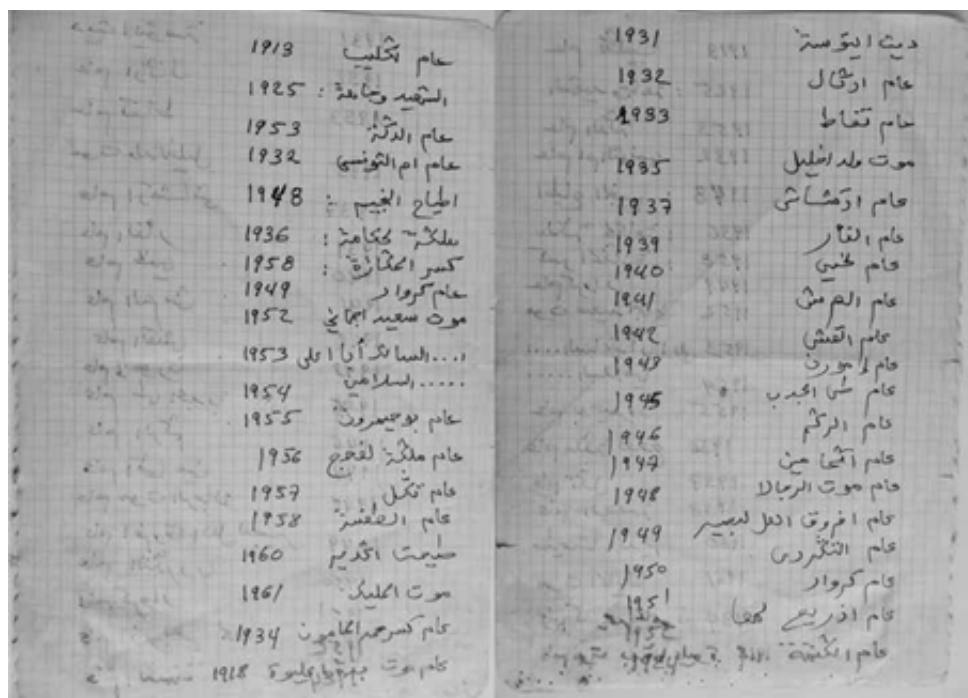 ديت التوسة 1931
عام اوثال 1932
عام تفاط 1933
موت ولد اخليل 1935
عام 1937
عام الفار 1939
عام لخني 1940
عام الصرمش 1941
عام القش 1942
عام 1943
عام شي الجدب 1945
عام الركم 1946
عام 1947
عام موت الرجالا 1948
عام افروق الغل لبسير 1949
عام التنكردى
عام كروار 1950
عام اذريع لحفا 1951
عام الكتنة
عام تكليب 1913
الشهيد وجماعة : 1925
عام الدكة 1953
عام ام التونسي 1932
اطياح الخيم : 1948
ملكة لحكامة : 1936
كسر الحكازة : 1958
عام كروار 1949
موت سعيد الجماني 1952
....الساند أبا اعلى 1953
.....السلامين 1954
عام بوحيمرون 1955
عام ملكة لفجح 1956
عام تكل 1957
عام الطفنة 1958
طيحت الخديم 1960
موت المليك 1961
عام كسر حمد المامون 1934
عام موت 1918